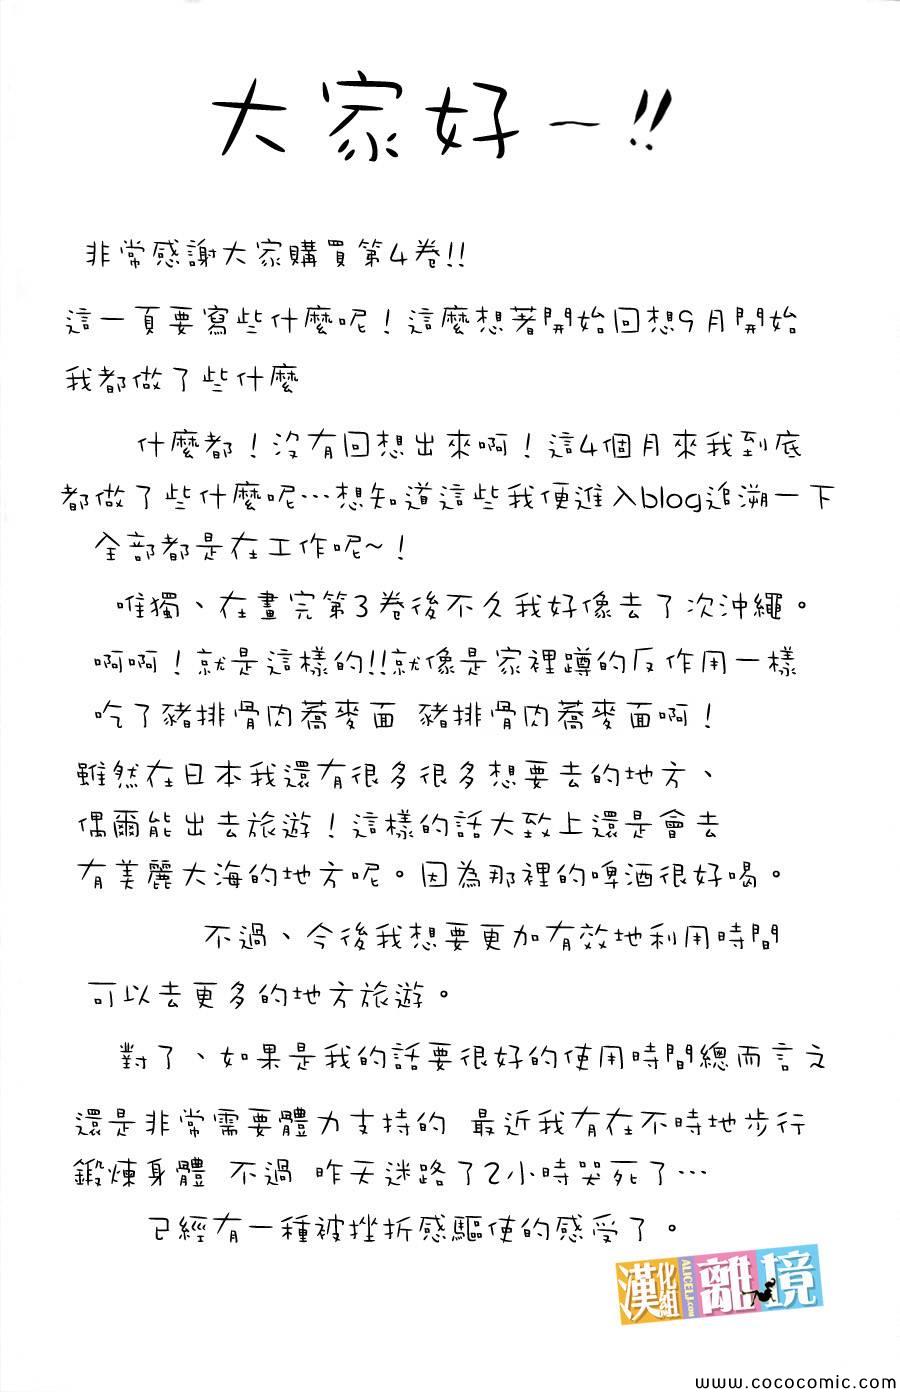 大家好～!!
非常感謝大家購買第4卷!!
這一頁要寫些什麼呢！這麼想著開始回想9月開始
我都做了些什麼
什麼都！沒有回想出來啊！這4個月來我到底
都做了些什麼呢…想知道這些我便進入blog追溯一下
全部都是在工作呢~！
唯獨、在畫完第3卷後不久我好像去了次沖繩。
啊啊！就是這樣的!!就像是家裡蹲的反作用一樣
吃了豬排骨肉蕎麥面 豬排骨肉蕎麥面啊！
雖然在日本我還有很多很多想要去的地方、
偶爾能出去旅遊！這樣的話大致上還是會去
有美麗大海的地方呢。因為那裡的啤酒很好喝。
不過、今後我想要更加有效地利用時間
可以去更多的地方旅遊。
對了、如果是我的話要很好的使用時間總而言之
還是非常需要體力支持的 最近我有在不時地步行
鍛煉身體 不過 昨天迷路了2小時哭死了…
已經有一種被挫折感驅使的感受了。
漢化組 ALICELJ.COM 離境
www.cococomic.com